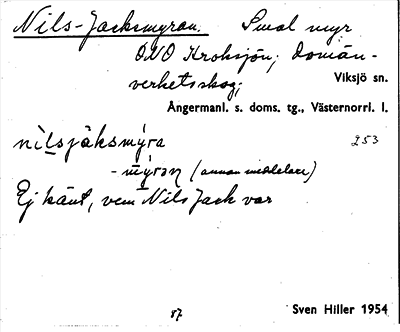 Nils-Jacksmyran. Smal myr
ONO Kroksjön; domän-
verketsskog;
Viksjö sn.
Ångermanl. s. doms. tg., Västernorrl. l.
nilsjáksmýra 253
-mýran (annan meddelare)
Ej känt, vem Nils Jack var
17 Sven Hiller 1954